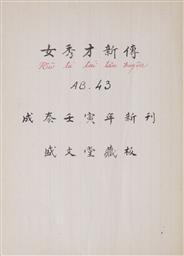 女秀才新傳
Nữ tú tài tân truyện
AB.43
成泰壬寅年新刊
盛文堂藏板